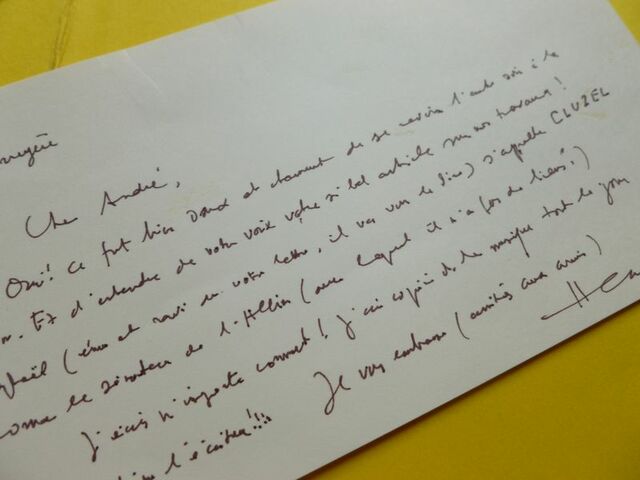 Cher André,
Oui! Ce fut bien doux et charmant de se revoir l'autre soir à la
n. Et d'entendre de votre voix votre si bel article sur nos travaux!
(ému et ravi de votre lettre, il va vous le dire) s'appelle CLUZEL
comme le sénateur de l'Allier (avec lequel il n'a pas de liens!)
J'écris n'importe comment! J'ai copié de la musique tout le jour
l'écriture!!!
Je vous embrasse (amitiés aux amis)